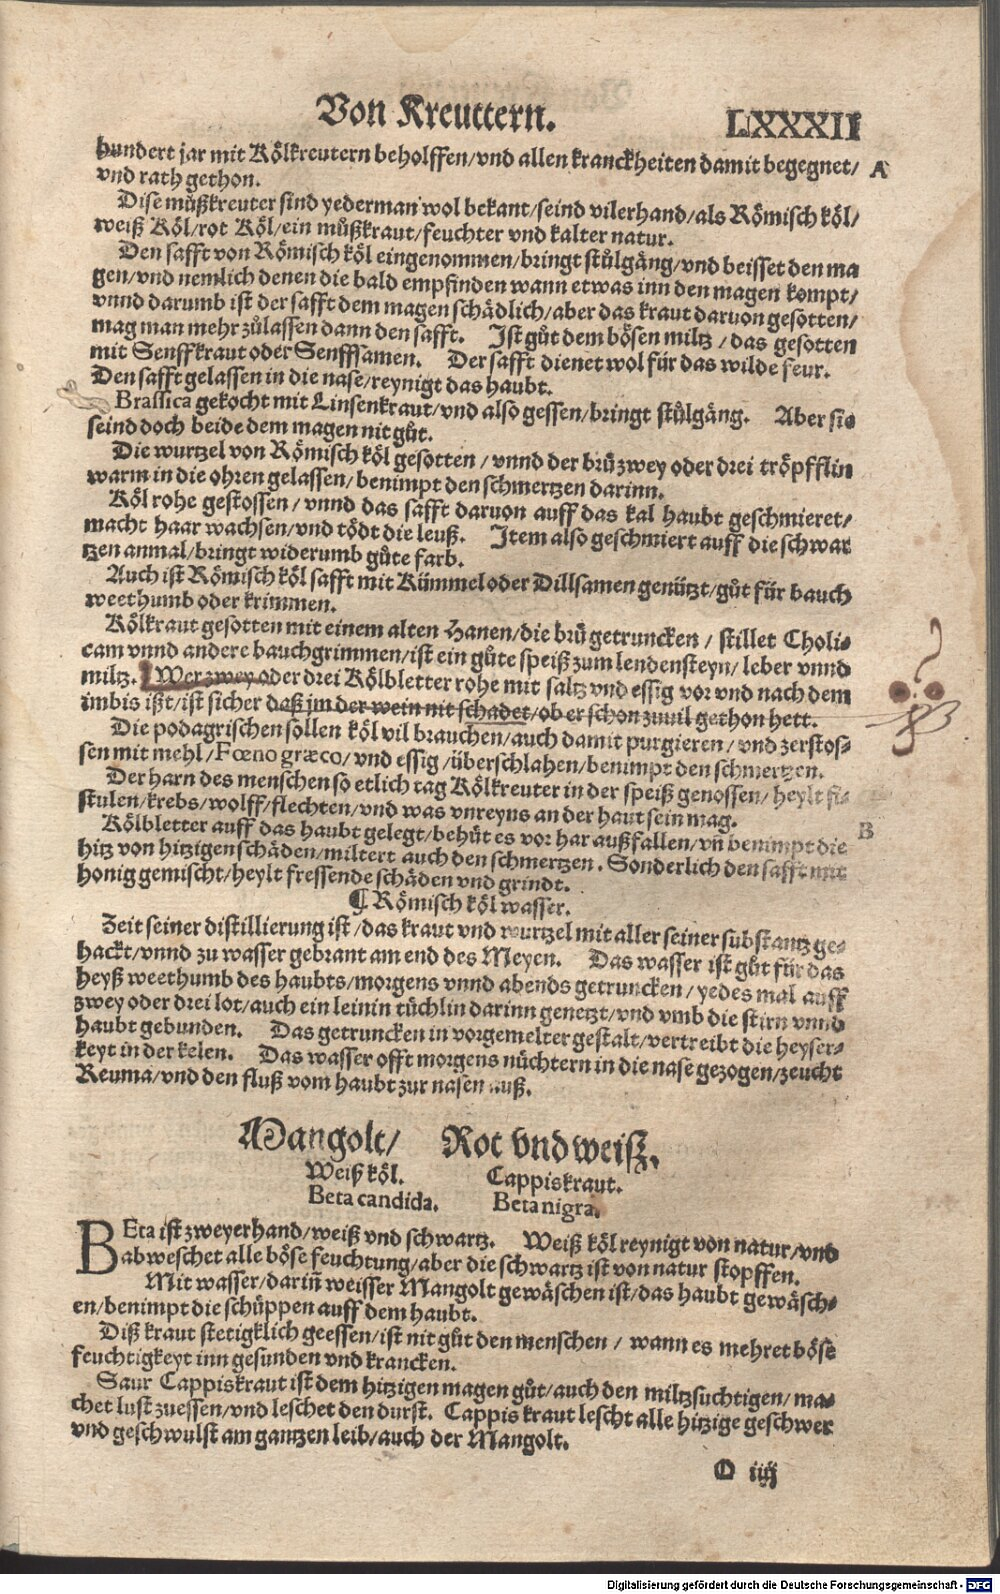 Von Kreuttern. LXXXII
hundert jar mit Kölkreutern beholffen/vnd allen kranckheiten damit begegnet/ A
vnd rath gethon.
Dise můßkreuter sind yederman wol bekant/seind vilerhand/als Römisch köl/
weiß Köl/rot Köl/ein můßkraut/feuchter vnd kalter natur.
Den safft von Römisch köl eingenommen/bringt stůlgäng/vnd beisset den ma
gen/vnd nemlich denen die bald empfinden wann etwas inn den magen kompt/
vnnd darumb ist der safft dem magen schädlich/aber das kraut daruon gesotten/
mag man mehr zůlassen dann den safft. Ist gůt dem bösen miltz/das gesotten
mit Senffkraut oder Senffsamen. Der safft dienet wol für das wilde feur.
Den safft gelassen in die nase/reynigt das haubt.
Brassica gekocht mit Linsenkraut/vnd also gessen/bringt stůlgäng. Aber sie
seind doch beide dem magen nit gůt.
Die wurtzel von Römisch köl gesotten/vnnd der brü zwey oder drei tröpfflin
warm in die ohren gelassen/benimpt den schmertzen darinn.
Köl rohe gestossen/vnnd das safft daruon auff das kal haubt geschmieret/
macht haar wachsen/vnd tödt die leuß. Item also geschmiert auff die schwar
tzen anmal/bringt widerumb gůte farb.
Auch ist Römisch köl safft mit Kümmel oder Dillsamen genützt/gůt für bauch
weethumb oder krimmen.
Kölkraut gesotten mit einem alten Hanen/die brü getruncken/stillet Choli-
cam vnnd andere bauchgrimmen/ist ein gůte speiß zum lendensteyn/leber vnnd
miltz. Wer zwey oder drei Kölbletter rohe mit saltz vnd essig vor vnd nach dem
imbis ißt/ist sicher daß jm der wein nit schadet/ob er schon zuuil gethon hett.
Die podagrischen sollen köl vil brauchen/auch damit purgieren/vnd zerstos-
sen mit mehl/Fœno græco/vnd essig/überschlahen/benimpt den schmertzen.
Der harn des menschen so etlich tag Kölkreuter in der speiß genossen/heylt fi-
stulen/krebs/wolff/flechten/vnd was vnreyns an der haut sein mag.
Kölbletter auff das haubt gelegt/behüt es vor har außfallen/vñ benimpt die B
hitz von hitzigen schäden/miltert auch den schmertzen. Sonderlich den safft mit
honig gemischt/heylt fressende schäden vnd grindt.
¶ Römisch köl wasser.
Zeit seiner distillierung ist/das kraut vnd wurtzel mit aller seiner substantz ge-
hackt/vnnd zu wasser gebrant am end des Meyen. Das wasser ist gůt für das
heyß weethumb des haubts/morgens vnnd abends getruncken/yedes mal auff
zwey oder drei lot/auch ein leinin tüchlin darinn genetzt/vnd vmb die stirn vnnd
haubt gebunden. Das getruncken in vorgemelter gestalt/vertreibt die heyser-
keyt in der kelen. Das wasser offt morgens nüchtern in die nase gezogen/zeucht
Reuma/vnd den fluß vom haubt zur nasen auß.
Mangolt/ Rot vnd weiß.
Weiß köl. Cappiskraut.
Beta candida. Beta nigra.
BEta ist zweyerhand/weiß vnd schwartz. Weiß köl reynigt von natur/vnd
abweschet alle böse feuchtung/aber die schwartz ist von natur stopffen.
Mit wasser/dariñ weisser Mangolt gewäschen ist/das haubt gewäsch-
en/benimpt die schüppen auff dem haubt.
Diß kraut stetigklich geessen/ist nit gůt den menschen/wann es mehret böse
feuchtigkeyt inn gesunden vnd krancken.
Saur Cappiskraut ist dem hitzigen magen gůt/auch den miltzsuchtigen/ma-
chet lust zuessen/vnd leschet den durst. Cappis kraut lescht alle hitzige geschwer
vnd geschwulst am gantzen leib/auch der Mangolt.
O iiij
Digitalisierung gefördert durch die Deutsche Forschungsgemeinschaft - DFG